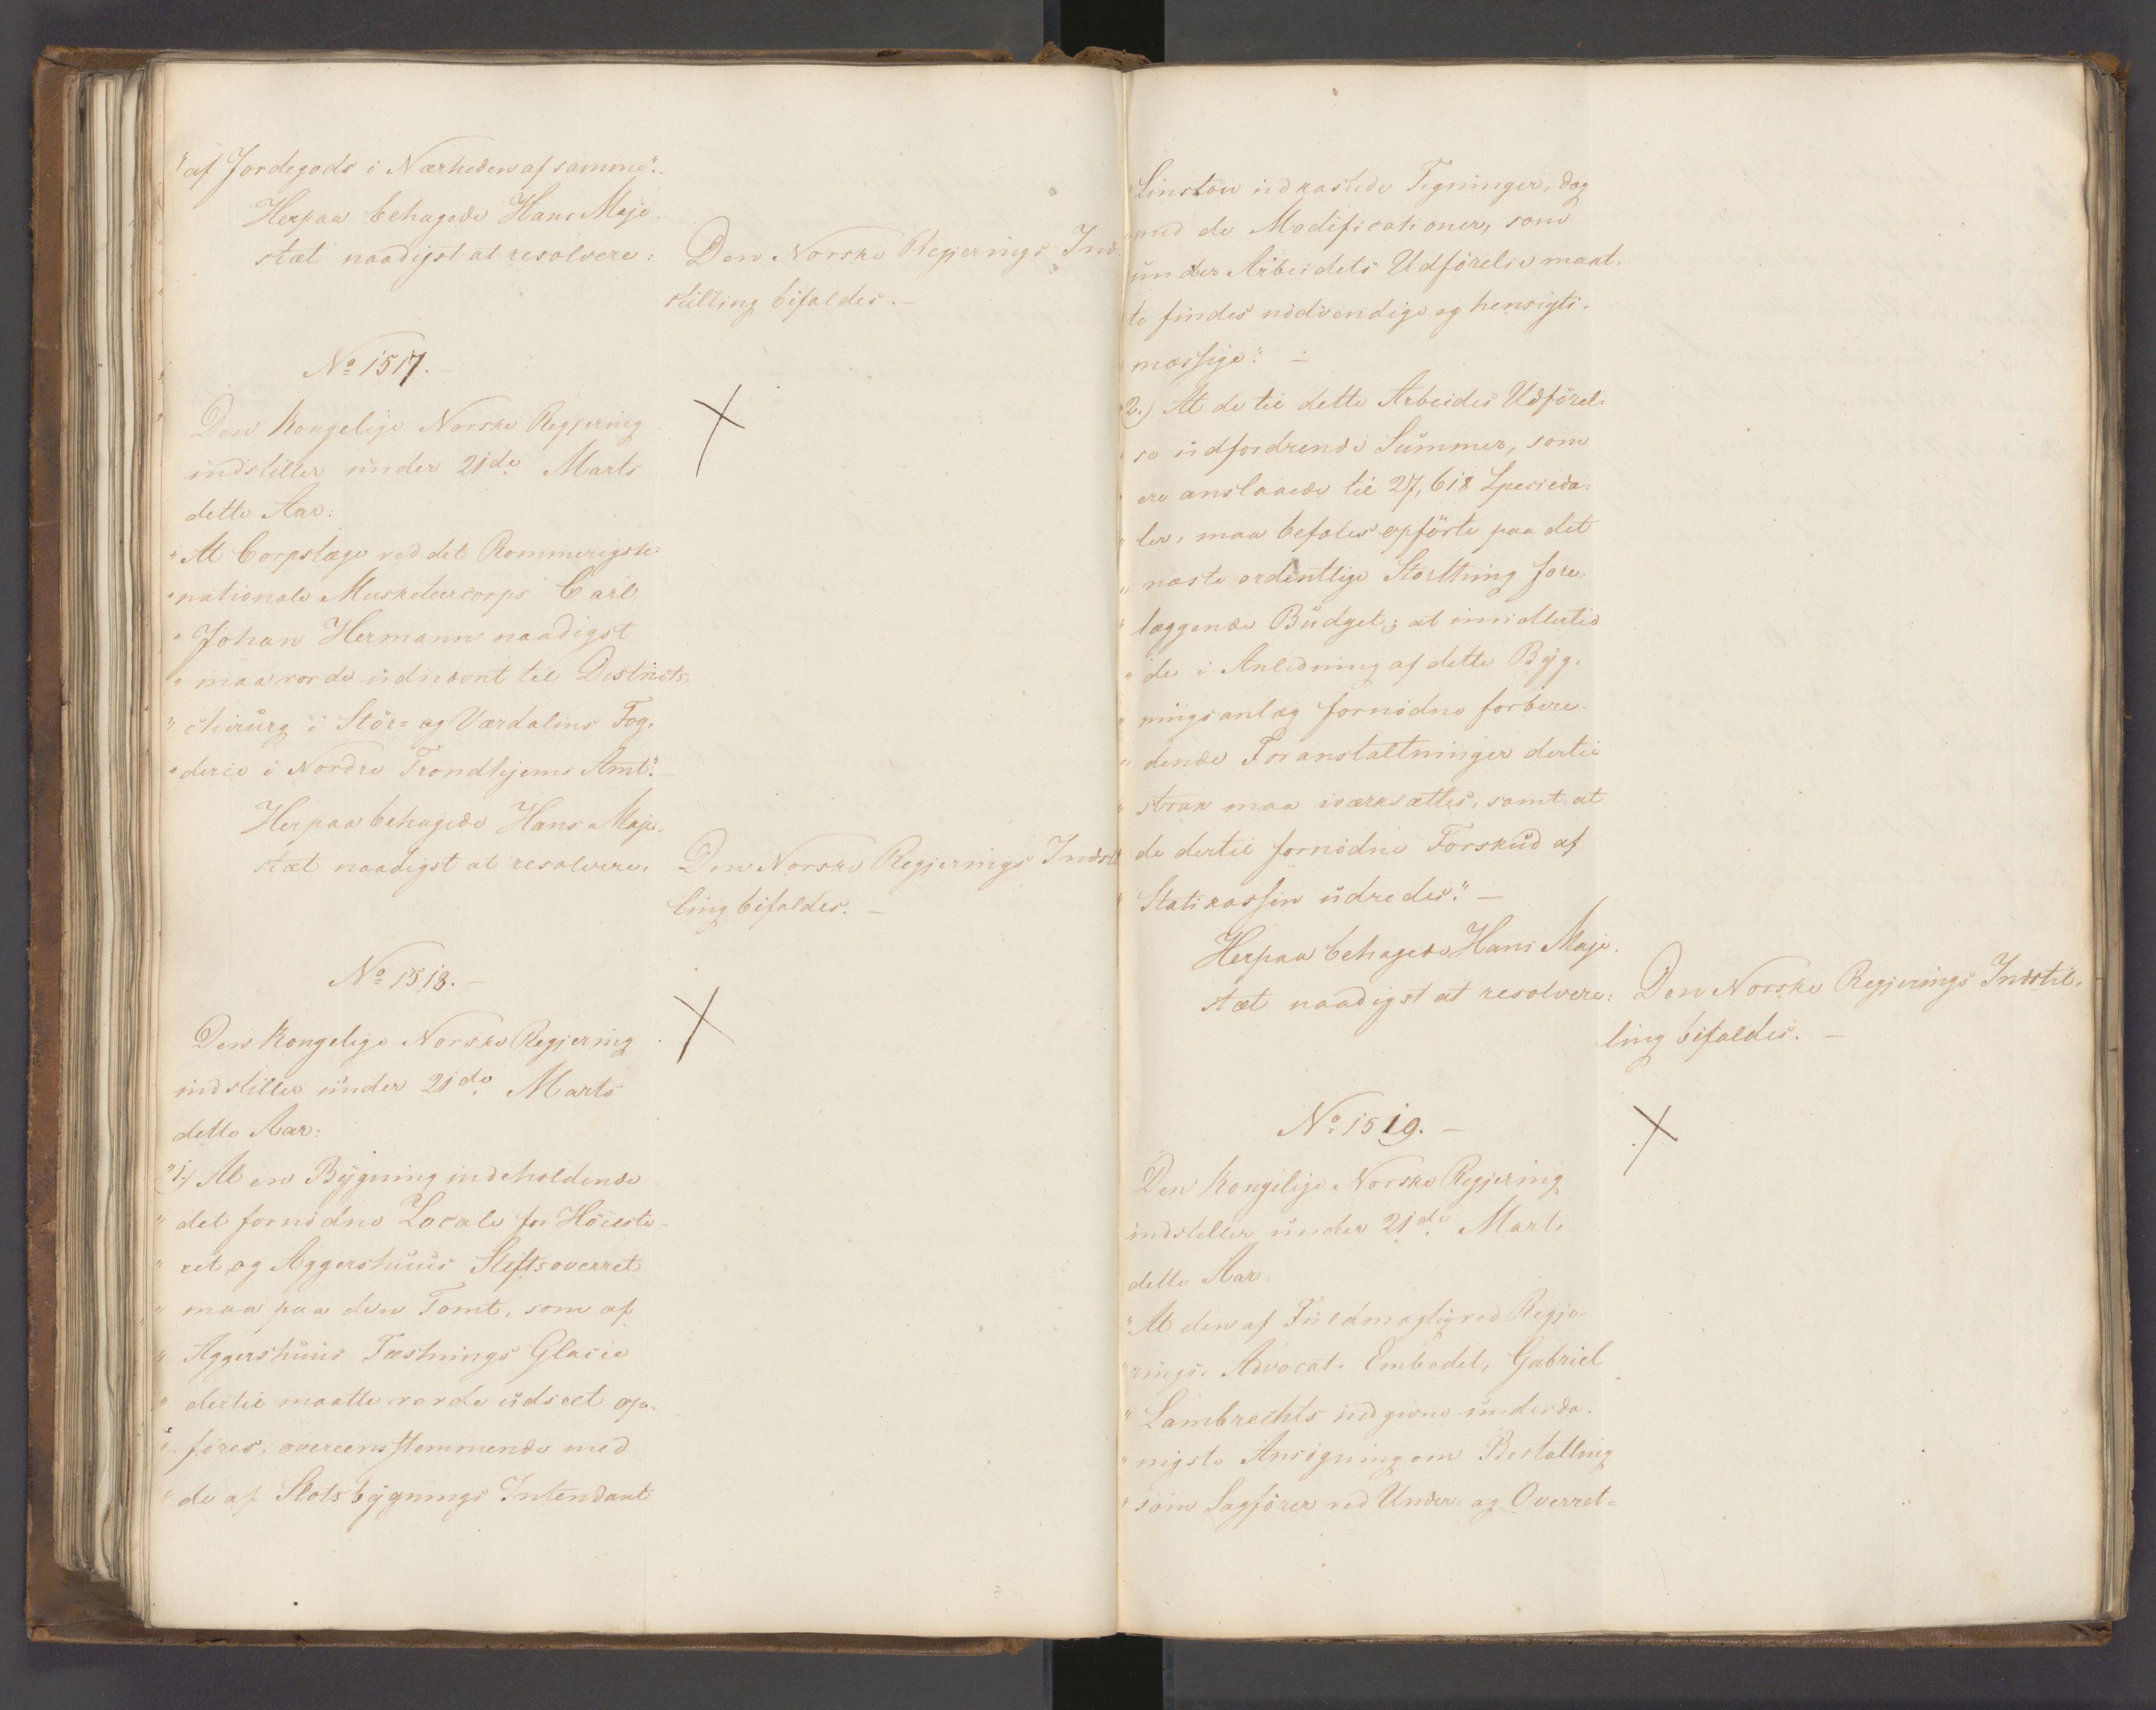 "af Jordegods i Nærheden af samme".
Herpaa behagede Hans Maje-
stæt naadigst at resolvere:
Den Norske Regjerings Ind-
stilling bifaldes.-
No 1517.-
Den Kongelige Norske Regjering
indstiller under 21de Marts
dette Aar:
"At Corpslæge ved det Rommerigske
"nationale Musketeercorps Carl
"Johan Hermann naadigst
"maa vorde udnævnt til Districts-
"chirurg i Stör- og Værdalens Fog-
"derie i Nordre Trondhjems Amt".
Herpaa behagede Hans Maje-
stæt naadigst at resolvere:
Den Norske Regjerings Indstil
ling bifaldes.-
No 1518.-
Den Kongelige Norske Regjering
indstiller under 21de Marts
dette Aar:
"1.) At en Bygning indeholdende
"det fornødne Locale for Höieste-
"ret og Aggershuus Stiftsoverret
"maa paa den Tomt, som af
"Aggershuus Fæstnings Glacie
"dertil maatte vorde udseet op-
"föres, overeensstemmende med
"de af Slotsbygnings Intendant
"Linstow udkastede Tegninger, dog
"med de Modificationer, som
"under Arbeidets Udförelse maat-
"te findes nödvendige og hensigts-
"mæssige". -
"2.) At de til dette Arbeides Udförel-
"se udfordrende Summer, som
"ere anslaaede til 27,618 Speciesda-
"ler, maa befales opförte paa det
"næste ordentlige Storthing fore-
"læggende Budget; at imidlertid
"de i Anledning af dette Byg-
"ningsanlæg fornödne forbere-
"dende Foranstaltninger dertil
"strax maa iværksættes, samt at
"de dertil fornödne Forskud af
"Statskassen udredes". -
Herpaa behagede Hans Maje-
stæt naadigst at resolvere:
Den Norske Regjerings Indstil-
ling bifaldes. -
No 1519. -
Den Kongelige Norske Regjering
indstiller under 21de Marts
dette Aar:
"At den af Fuldmægtig ved Regje-
"rings-Advocat-Embedet, Gabriel
"Lambrechts indgivne underda-
"nigste Ansögning om Bestalling
"som Sagförer ved Under- og Overret-